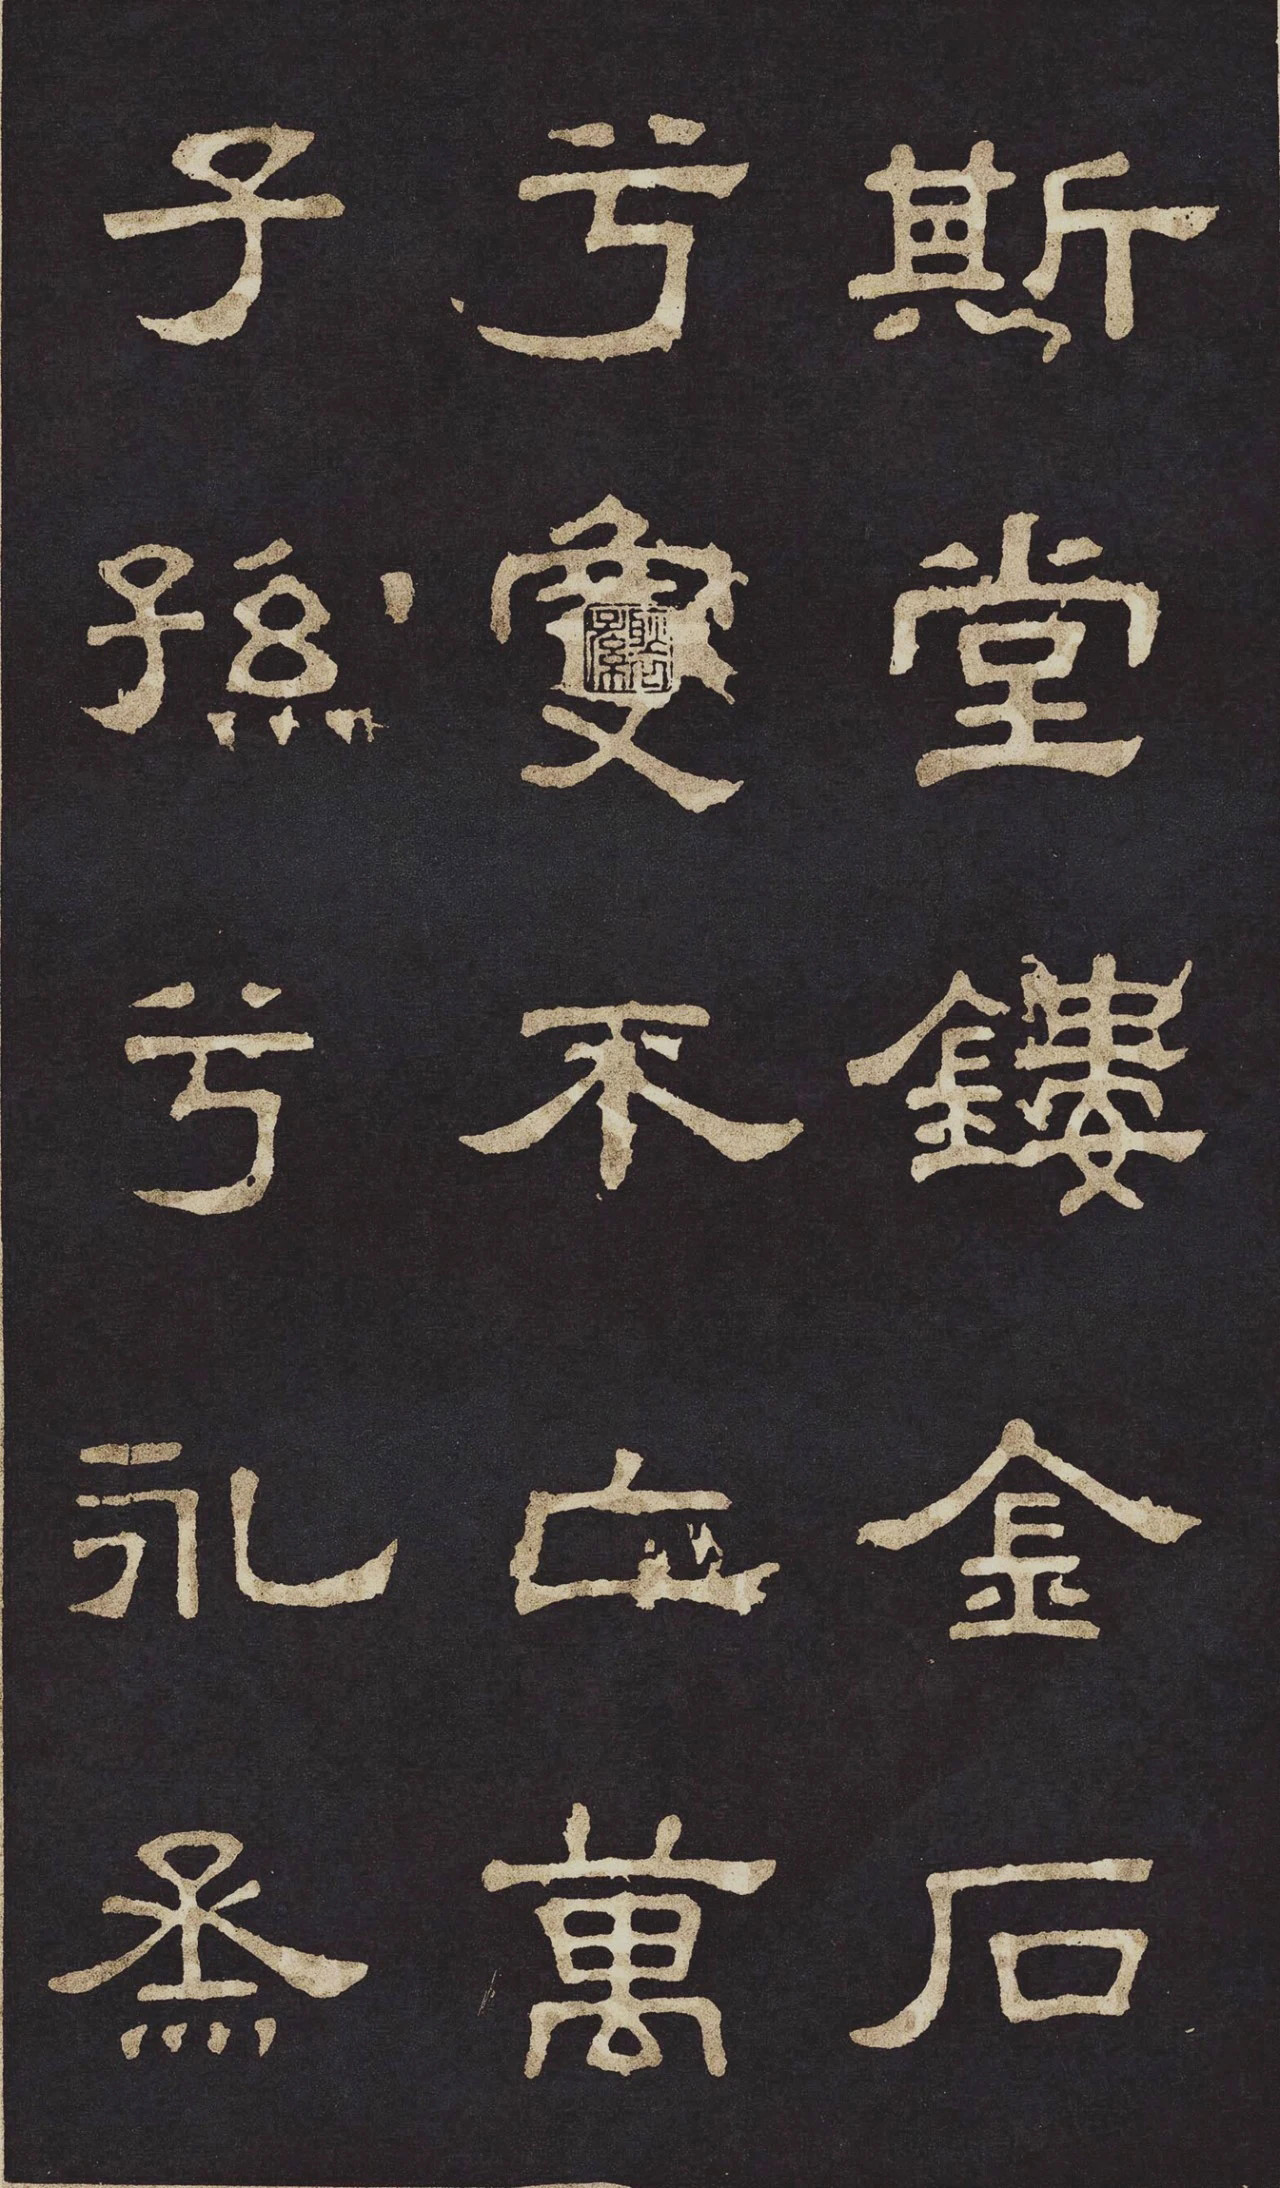 斯堂鏤金石
兮不亡萬
子孫兮永烝